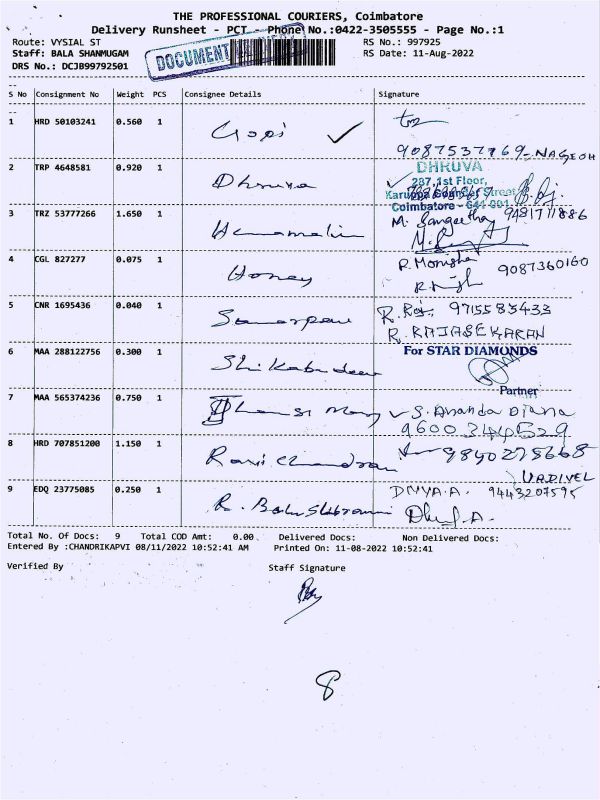 THE PROFESSIONAL COURIERS, Coimbatore
Delivery Runsheet - PCT - Phone No.:0422-3505555 - Page No.:1
Route: VYSIAL ST RS No.: 997925
Staff: BALA SHANMUGAM RS Date: 11-Aug-2022
DRS No.: DCJB99792501
DOCUMENT
S No Consignment No Weight PCS Consignee Details Signature
1 HRD 50103241 0.560 1 Gopi
9087537769 - NAGEOH
2 TRP 4648581 0.920 1 Dhruva DHRUVA
287, 1st Floor,
Karuppa Gounder Street
Coimbatore - 641 001
3 TRZ 53777266 1.650 1 Hemamalini M. Sangeetha 9481711886
4 CGL 827277 0.075 1 Honey R. Monisha 9087360160
5 CNR 1695436 0.040 1 R. Raj. 9715583433
R. RAJASEKARAN
6 MAA 288122756 0.300 1 For STAR DIAMONDS
Partner
7 MAA 565374236 0.750 1 S. Ananda Diana
9600344529
8 HRD 707851200 1.150 1 Ravi Chandran 9840275668
VADIVEL
9 EDQ 23775085 0.250 1 R. DIVYA.A. 9443207595
Total No. Of Docs: 9 Total COD Amt: 0.00 Delivered Docs: Non Delivered Docs:
Entered By :CHANDRIKAPVI 08/11/2022 10:52:41 AM Printed On: 11-08-2022 10:52:41
Verified By Staff Signature
8